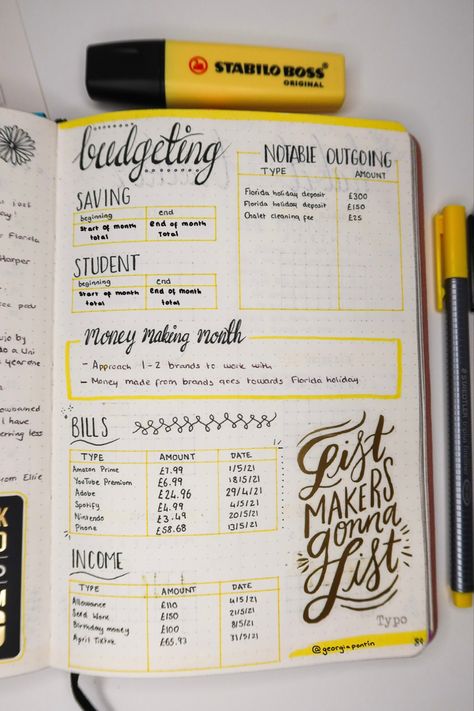 STABILO BOSS
ORIGINAL
budgeting
SAVING
beginning end
Start of month total End of month Total
STUDENT
beginning end
Start of month total End of month total
NOTABLE OUTGOING
TYPE AMOUNT
Florida holiday deposit £300
Florida holiday deposit £150
Chalet cleaning fee £25
Money Making Month
- Approach 1-2 brands to work with
- Money made from brands goes towards Florida holiday
BILLS
TYPE AMOUNT DATE
Amazon Prime £7.99 1/5/21
YouTube Premium £6.99 18/5/21
Adobe £24.96 29/4/21
Spotify £4.99 4/5/21
Nintendo £3.49 20/5/21
Phone £58.68 13/5/21
INCOME
TYPE AMOUNT DATE
Allowance £110 4/5/21
Seed Work £150 21/5/21
Birthday money £100 8/5/21
April TikTok £65.93 31/5/21
List
MAKERS
gonna
List
Typo
@georgiapontin